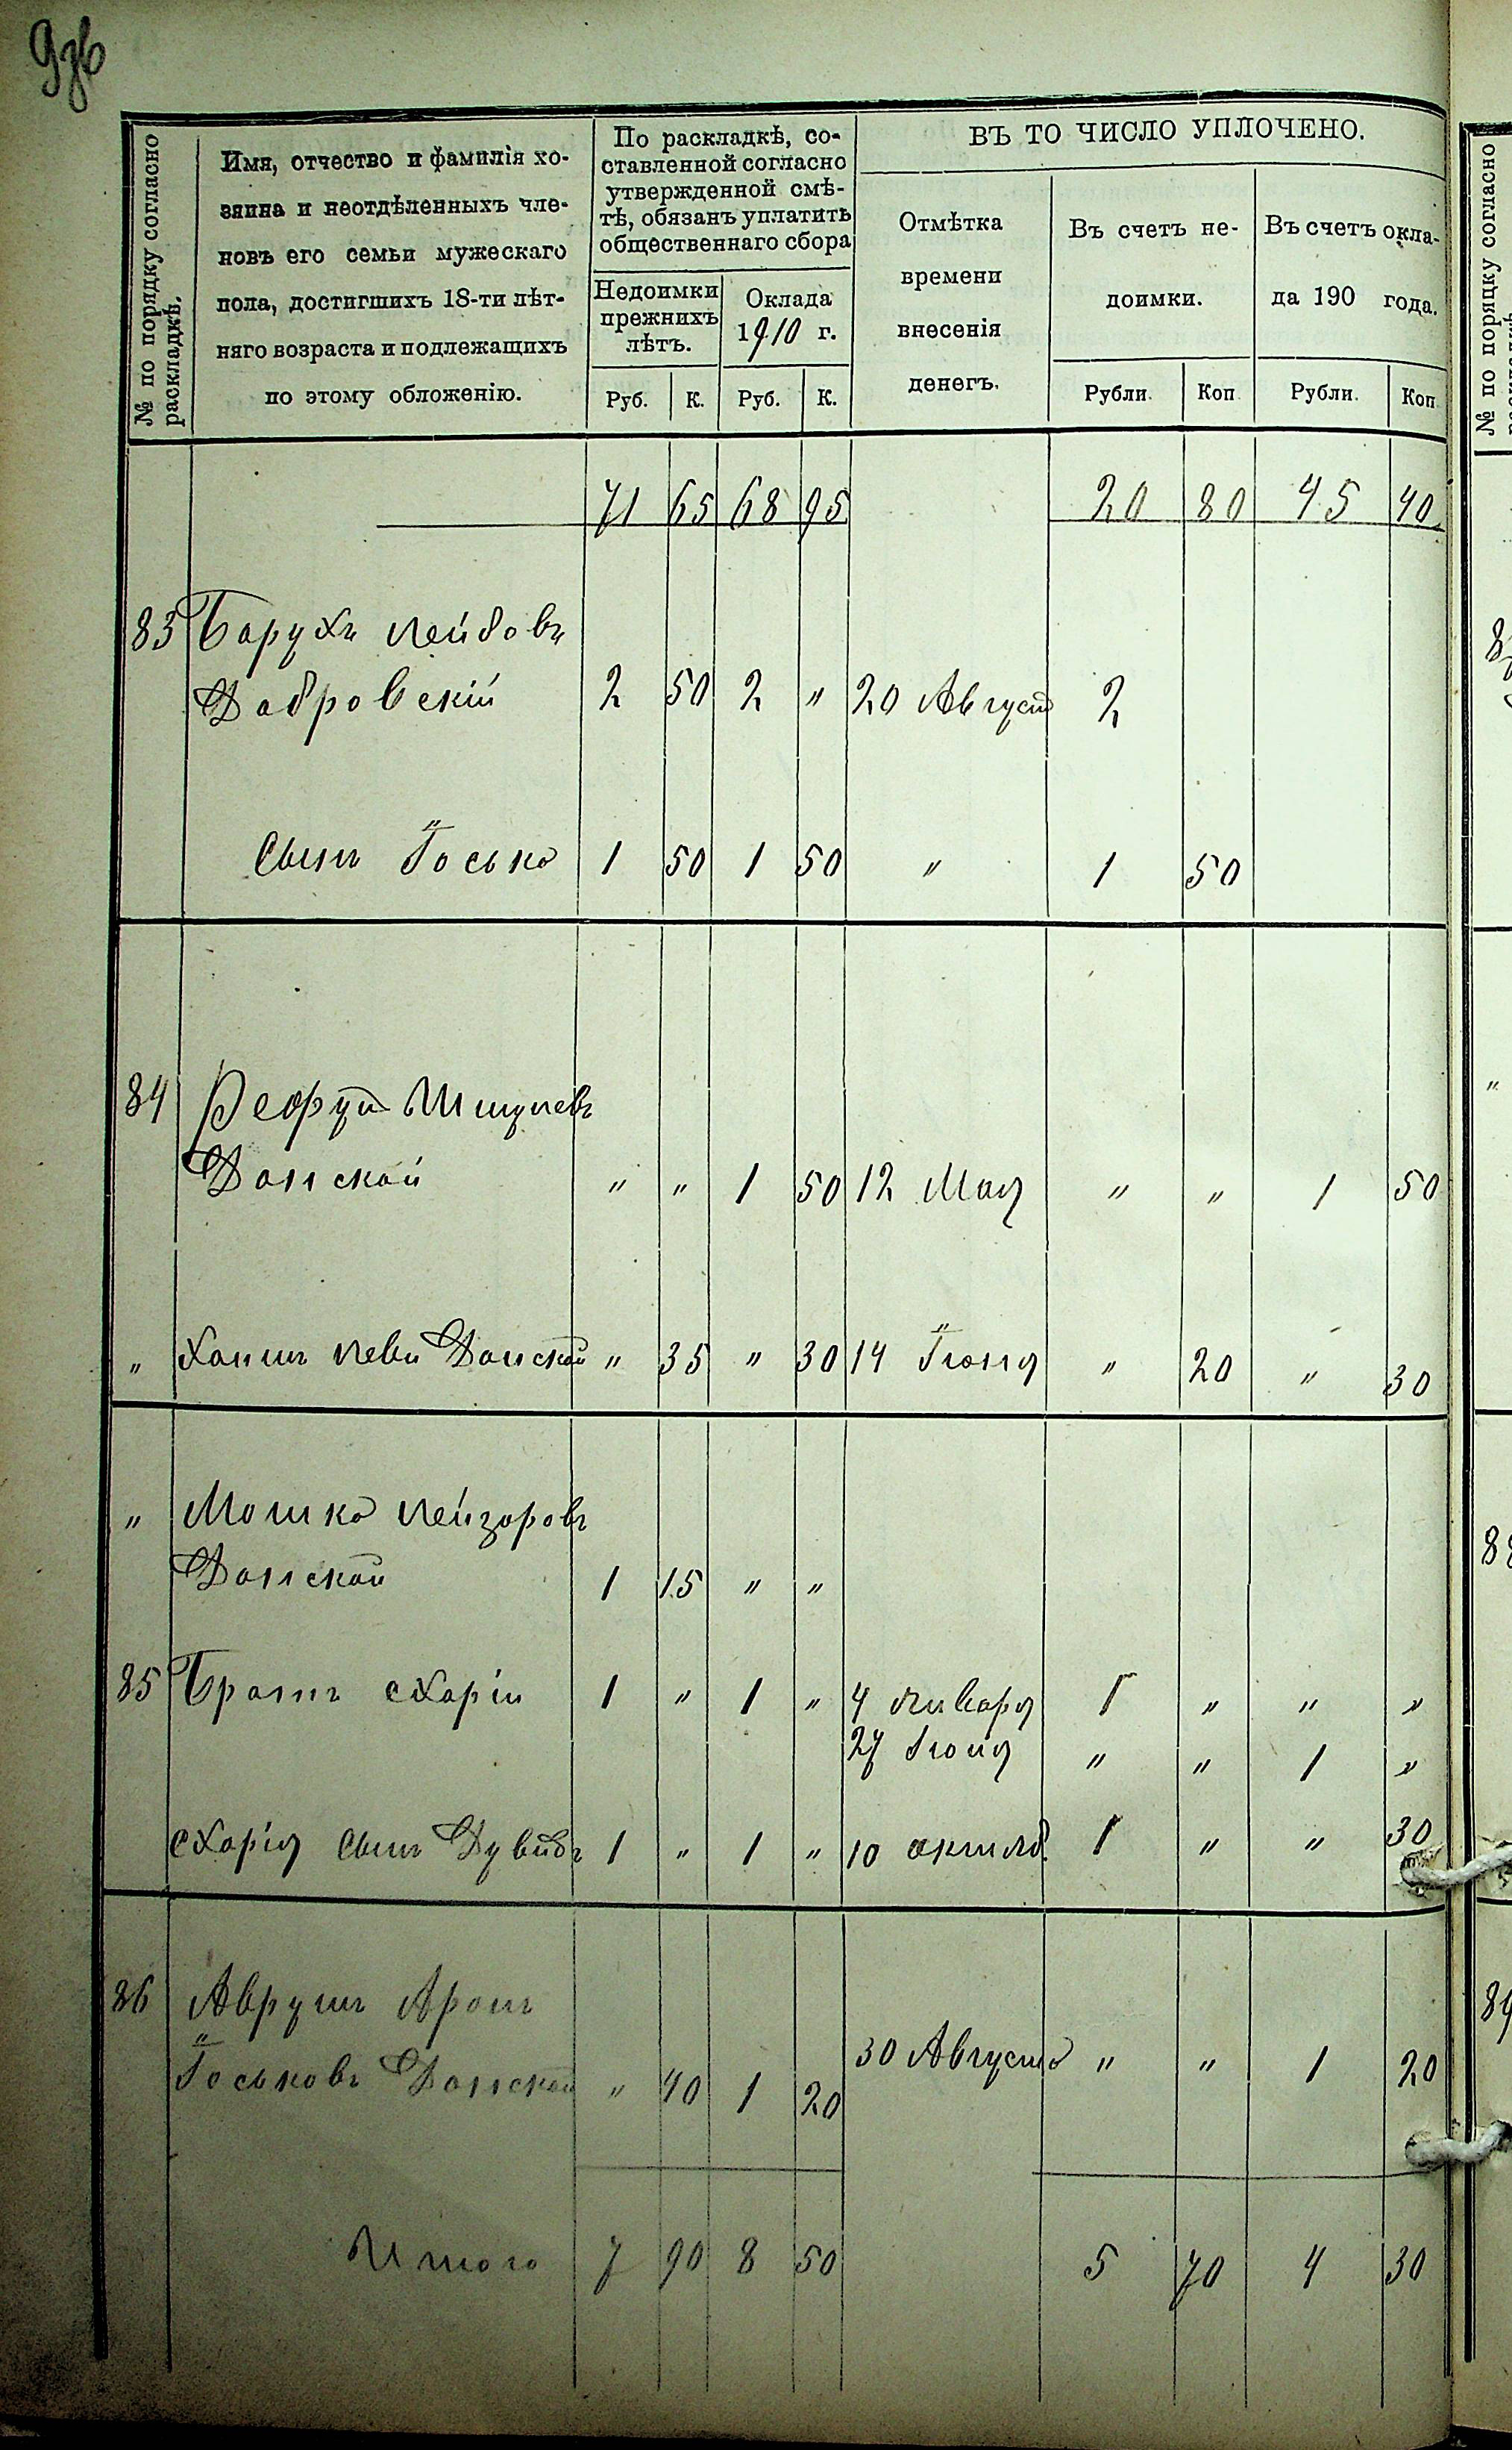 № по порядку согласно раскладкѣ.
Имя, отчество и фамилія хо-
зяина и неотдѣленныхъ чле-
новъ его семьи мужескаго
пола, достигшихъ 18-ти лѣт-
няго возраста и подлежащихъ
по этому обложенію.
По раскладкѣ, со-
ставленной согласно
утвержденной смѣ-
тѣ, обязанъ уплатить
общественнаго сбора
Недоимки
прежнихъ
лѣтъ.
Оклада
1910 г.
Руб. К. Руб. К.
ВЪ ТО ЧИСЛО УПЛОЧЕНО.
Отмѣтка
времени
внесенія
денегъ.
Въ счетъ не-
доимки.
Въ счетъ окла-
да 190 года.
Рубли. Коп Рубли. Коп
71 65 68 95 20 80 45 40
83 Барухъ Лейбовъ
Добровскій 2 50 2 " 20 Август 2
Сынъ Іосько 1 50 1 50 " 1 50
84
Донской " " 1 50 12 Мая " " 1 50
" Хаимъ Леви Донской " 35 " 30 14 Іюня " 20 " 30
" Мошко Лейзоровъ
Донской 1 15 " "
85 Братъ Схарія 1 " 1 " 4 Января 1 " " "
27 Іюня " " 1 "
Схарія Сынъ Дувидъ 1 " 1 " 10 октяб. 1 " " 30
86 Аврумъ Аронъ
Іоськовъ Донской " 40 1 20 30 Августа " " 1 20
Итого 7 90 8 50 5 70 4 30
№ по порядку согласно